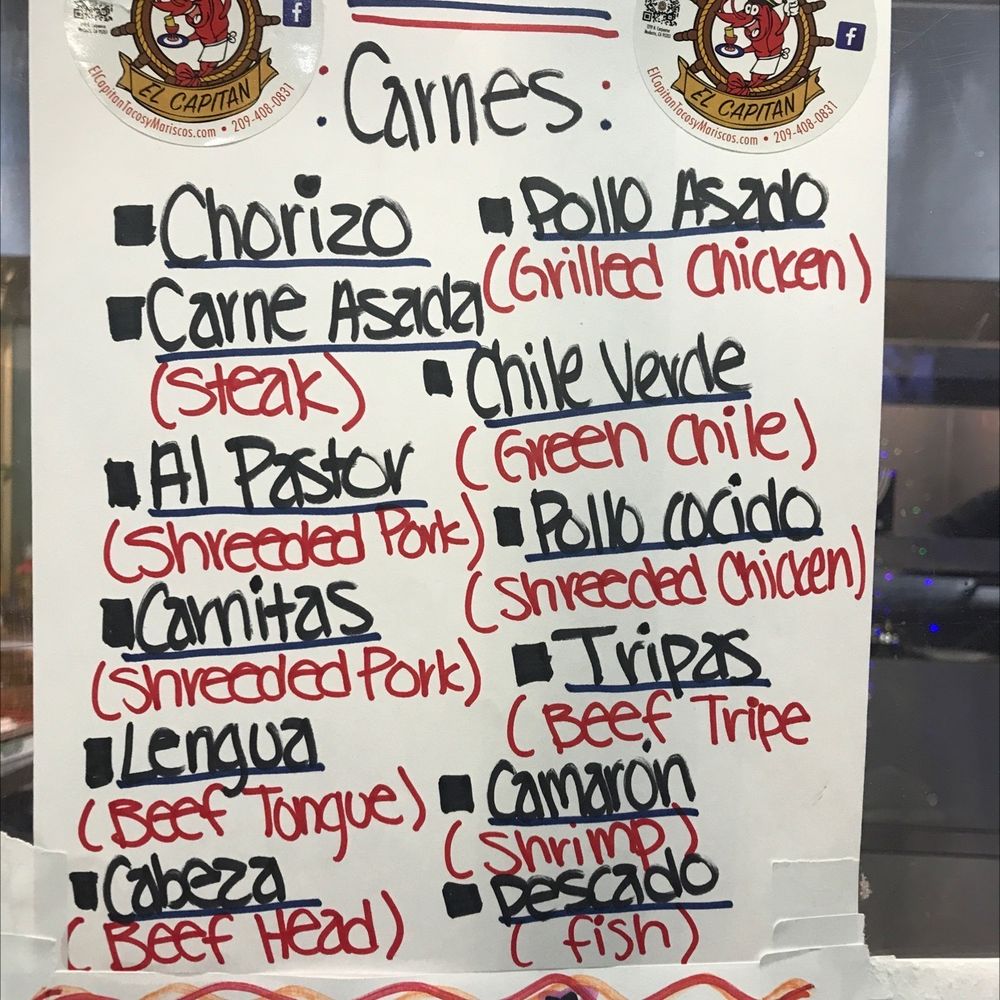 EL CAPITAN
ElCapitanTacosyMariscos.com • 209-408-0831
EL CAPITAN
ElCapitanTacosyMariscos.com • 209-408-0831
: Carnes :
Chorizo
Carne Asada
(Steak)
Al Pastor
(Shreeded Pork)
Carnitas
(Shreeded Pork)
Lengua
(Beef Tongue)
Cabeza
(Beef Head)
Pollo Asado
(Grilled Chicken)
Chile Verde
(Green Chile)
Pollo cocido
(Shreeded Chicken)
Tripas
(Beef Tripe
Camarón
(Shrimp)
Pescado
(fish)